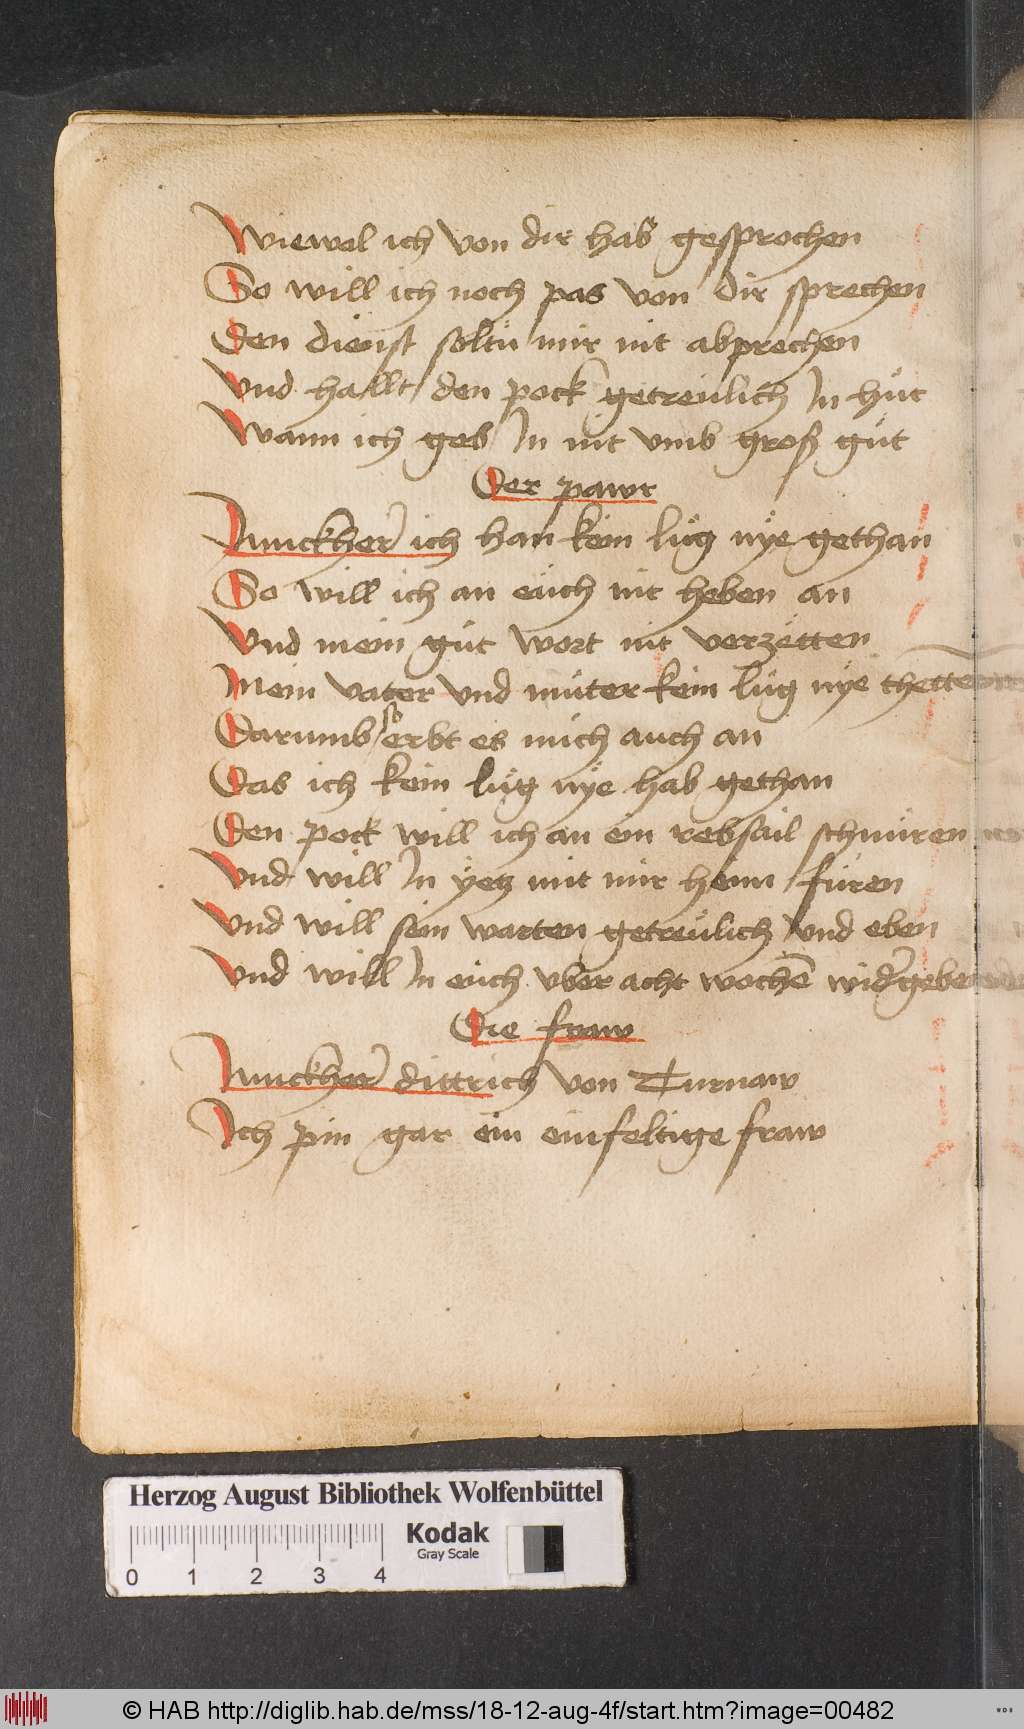 Wiewol ich von dir hab gesprochen
So will ich noch pas von dir sprechen
Den dienst soltu mir nit abprechen
Vnd hallt den pock getreülich In hüt
Wann ich geb In nit vmb groß güt
Der pawr
Junckher ich han kein lüg nÿe gethan
So will ich an eüch nit heben an
Vnd mein güt wort nit verzetten
Mein vater vnd müter kein lüg nÿe thetten
Darumb so erbt es mich auch an
Das ich kein lüg nÿe hab gethan
Den pock will ich an ein rebsail schnüren
Vnd will In ÿetz mit mir heim füren
Vnd will sein warten getreülich vnd eben
Vnd will In eüch vber acht wochē wider geben
Die fraw
Junckher dittrich von Turnaw
Ich pin gar ein einfeltige fraw
Herzog August Bibliothek Wolfenbüttel
Kodak
Gray Scale
0 1 2 3 4
© HAB http://diglib.hab.de/mss/18-12-aug-4f/start.htm?image=00482